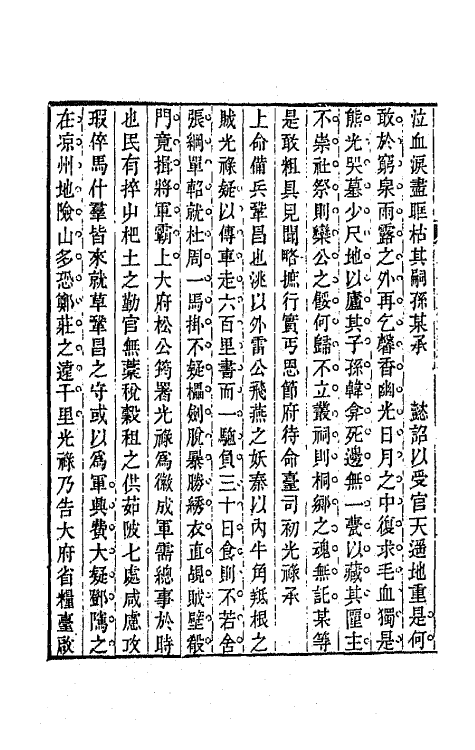 泣血淚盡眶枯其嗣孫某承　　懿詔以受官天邇地重是何
敢於窮泉雨露之外再乞馨香幽光日月之中復求毛血獨是
熊光哭墓少尺地以廬其子孫韓弇死邊無一甕以藏其匶主
不崇社祭則欒公之骰何歸不立叢祠則桐鄉之魂無託某等
是敢粗具見聞略摭行實丐恩節府待命臺司初光祿承
上命備兵鞏昌也洮以外雷公飛燕之妖秦以內牛角羝根之
賊光祿疑以傳車走六百里書而一驅負三十日食則不若舍
張綱單軺就杜周一馬掛不疑櫑劍脫暴勝綉衣直覘賊壁般
門竟揖將軍霸上大府松公筠署光祿為徽成軍需總事於時
也民有捽屮杷土之勤官無藁稅穀租之供茹陂七處咸慮攻
瑕倅馬什羣皆來就草鞏昌之守或以為軍興費大疑鄧隲之
在涼州地險山多恐鄭莊之違千里光祿乃告大府省糧臺啟